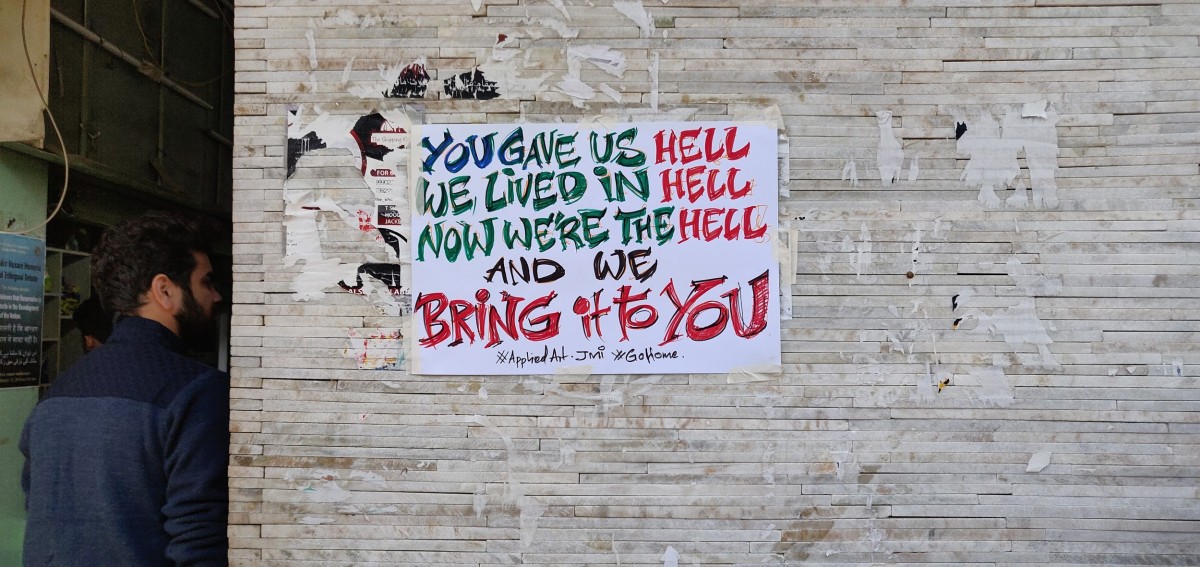 YOU GAVE US HELL
WE, LIVED IN HELL
NOW WE'RE THE HELL
AND WE
BRING it to YOU
#Applied Art. JMI #GoHome.
FOR